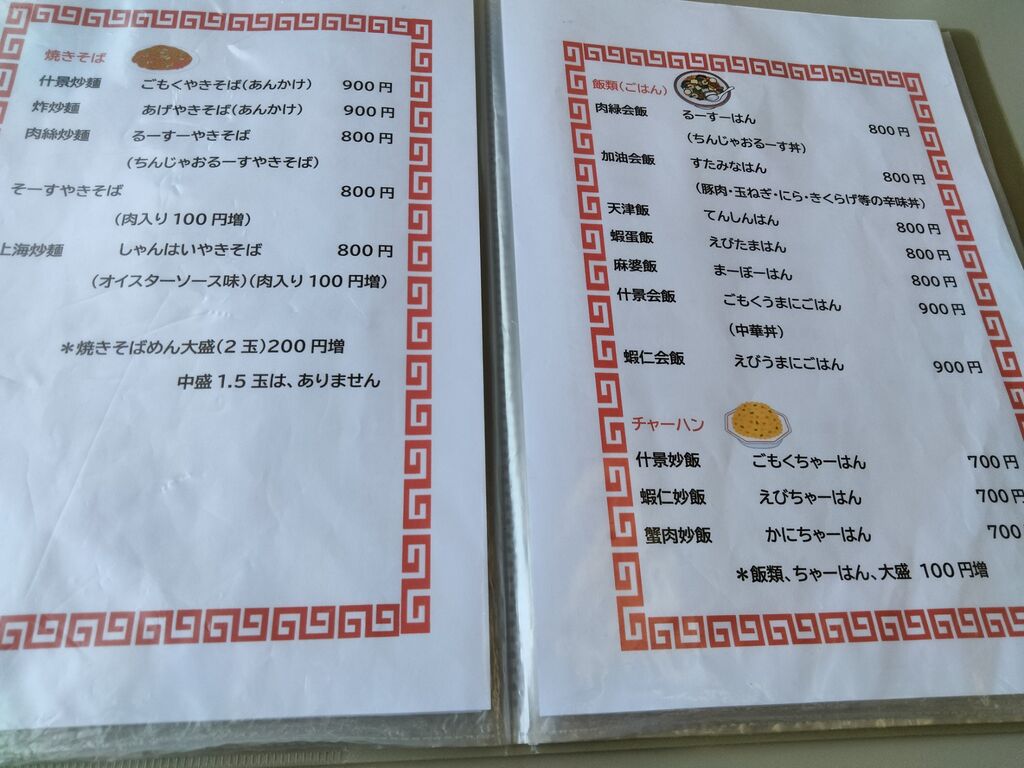 焼きそば
什景炒麺 ごもくやきそば(あんかけ) 900円
炸炒麺 あげやきそば(あんかけ) 900円
肉絲炒麺 るーすーやきそば 800円
(ちんじゃおるーすやきそば)
そーすやきそば 800円
(肉入り100円増)
上海炒麺 しゃんはいやきそば 800円
(オイスターソース味)(肉入り100円増)
＊焼きそばめん大盛(2玉)200円増
中盛1.5玉は、ありません
飯類(ごはん)
肉緑会飯 るーすーはん 800円
(ちんじゃおるーす丼)
加油会飯 すたみなはん 800円
(豚肉・玉ねぎ・にら・きくらげ等の辛味丼)
天津飯 てんしんはん 800円
蝦蛋飯 えびたまはん 800円
麻婆飯 まーぼーはん 800円
什景会飯 ごもくうまにごはん 900円
(中華丼)
蝦仁会飯 えびうまにごはん 900円
チャーハン
什景妙飯 ごもくちゃーはん 700円
蝦仁妙飯 えびちゃーはん 700円
蟹肉妙飯 かにちゃーはん 700
＊飯類、ちゃーはん、大盛 100円増